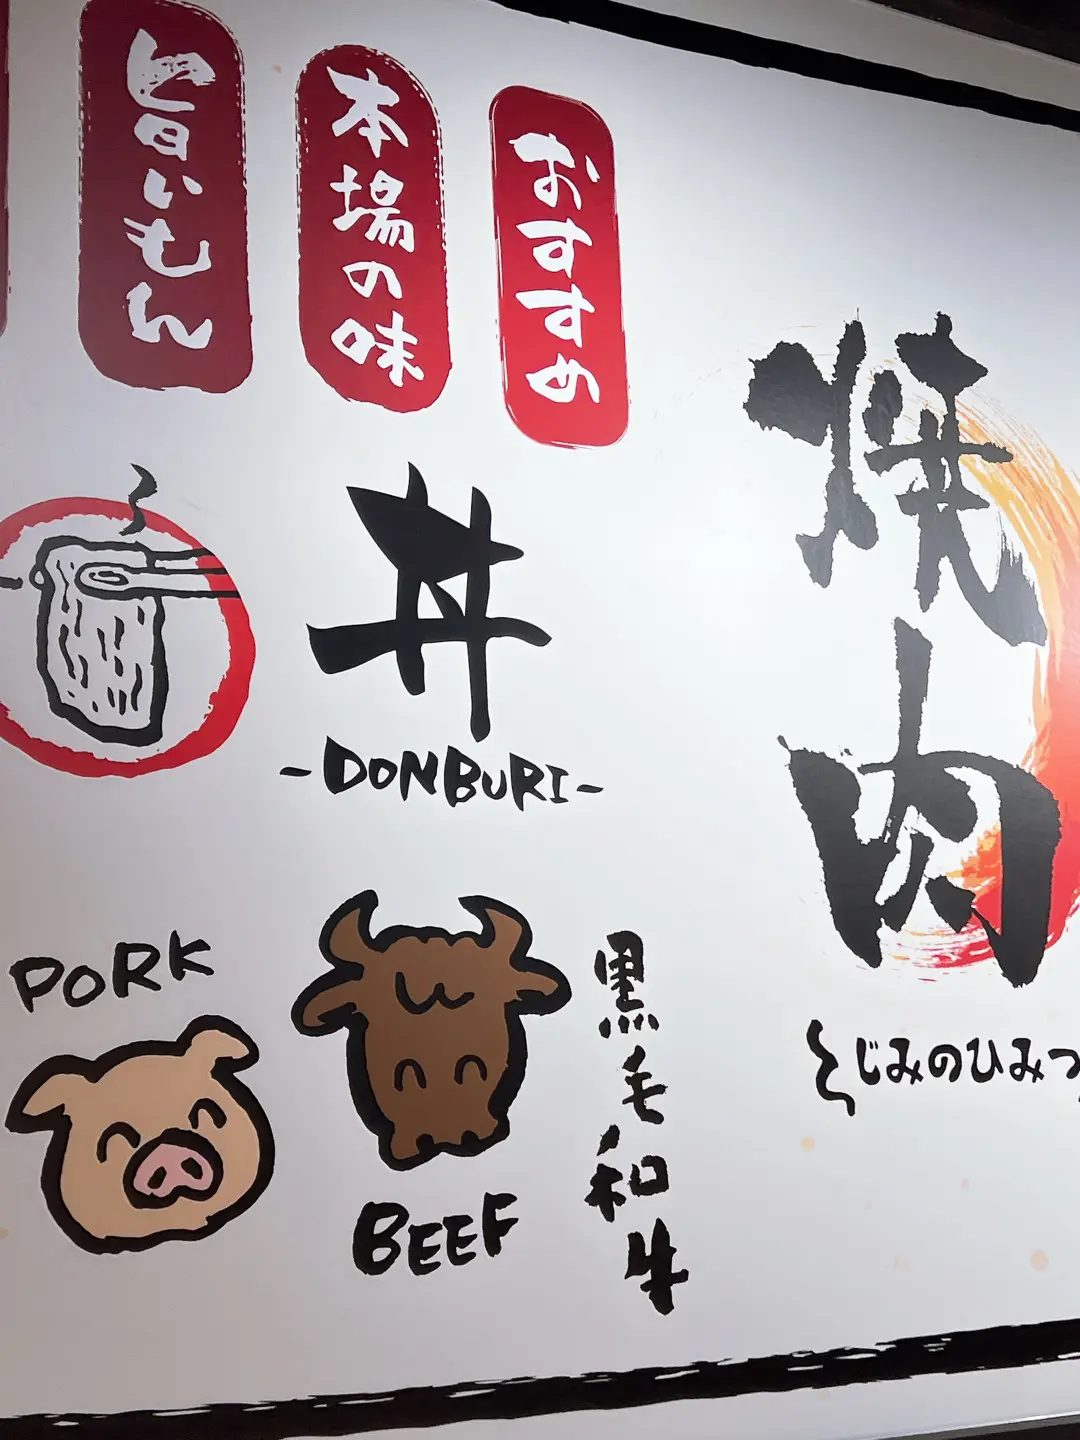 旨いもん
本場の味
おすすめ
丼
-DONBURI-
焼肉
PORK
BEEF
黒毛和牛
〜じみのひみつ